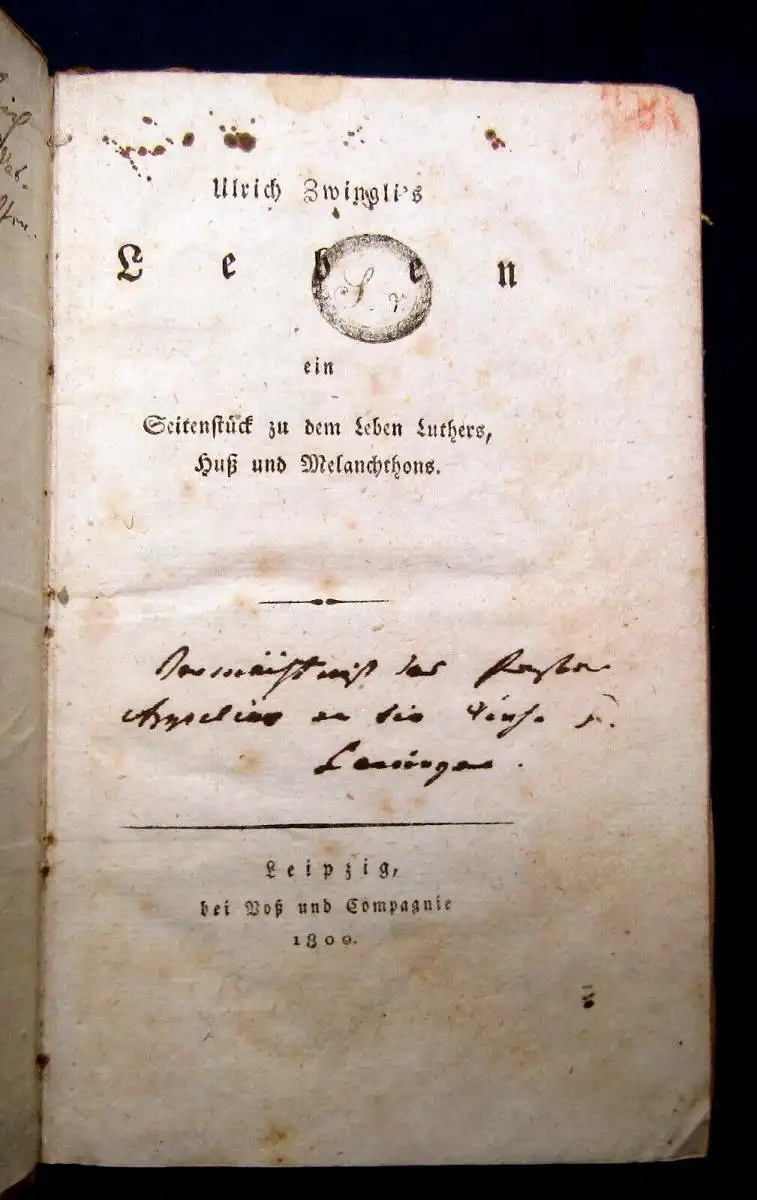 Ulrich Zwingli's
Leben
ein
Seitenstück zu dem Leben Luthers,
Huß und Melanchthons.
Vermächtniß des
an die
Leipzig,
bei Voß und Compagnie
1800.